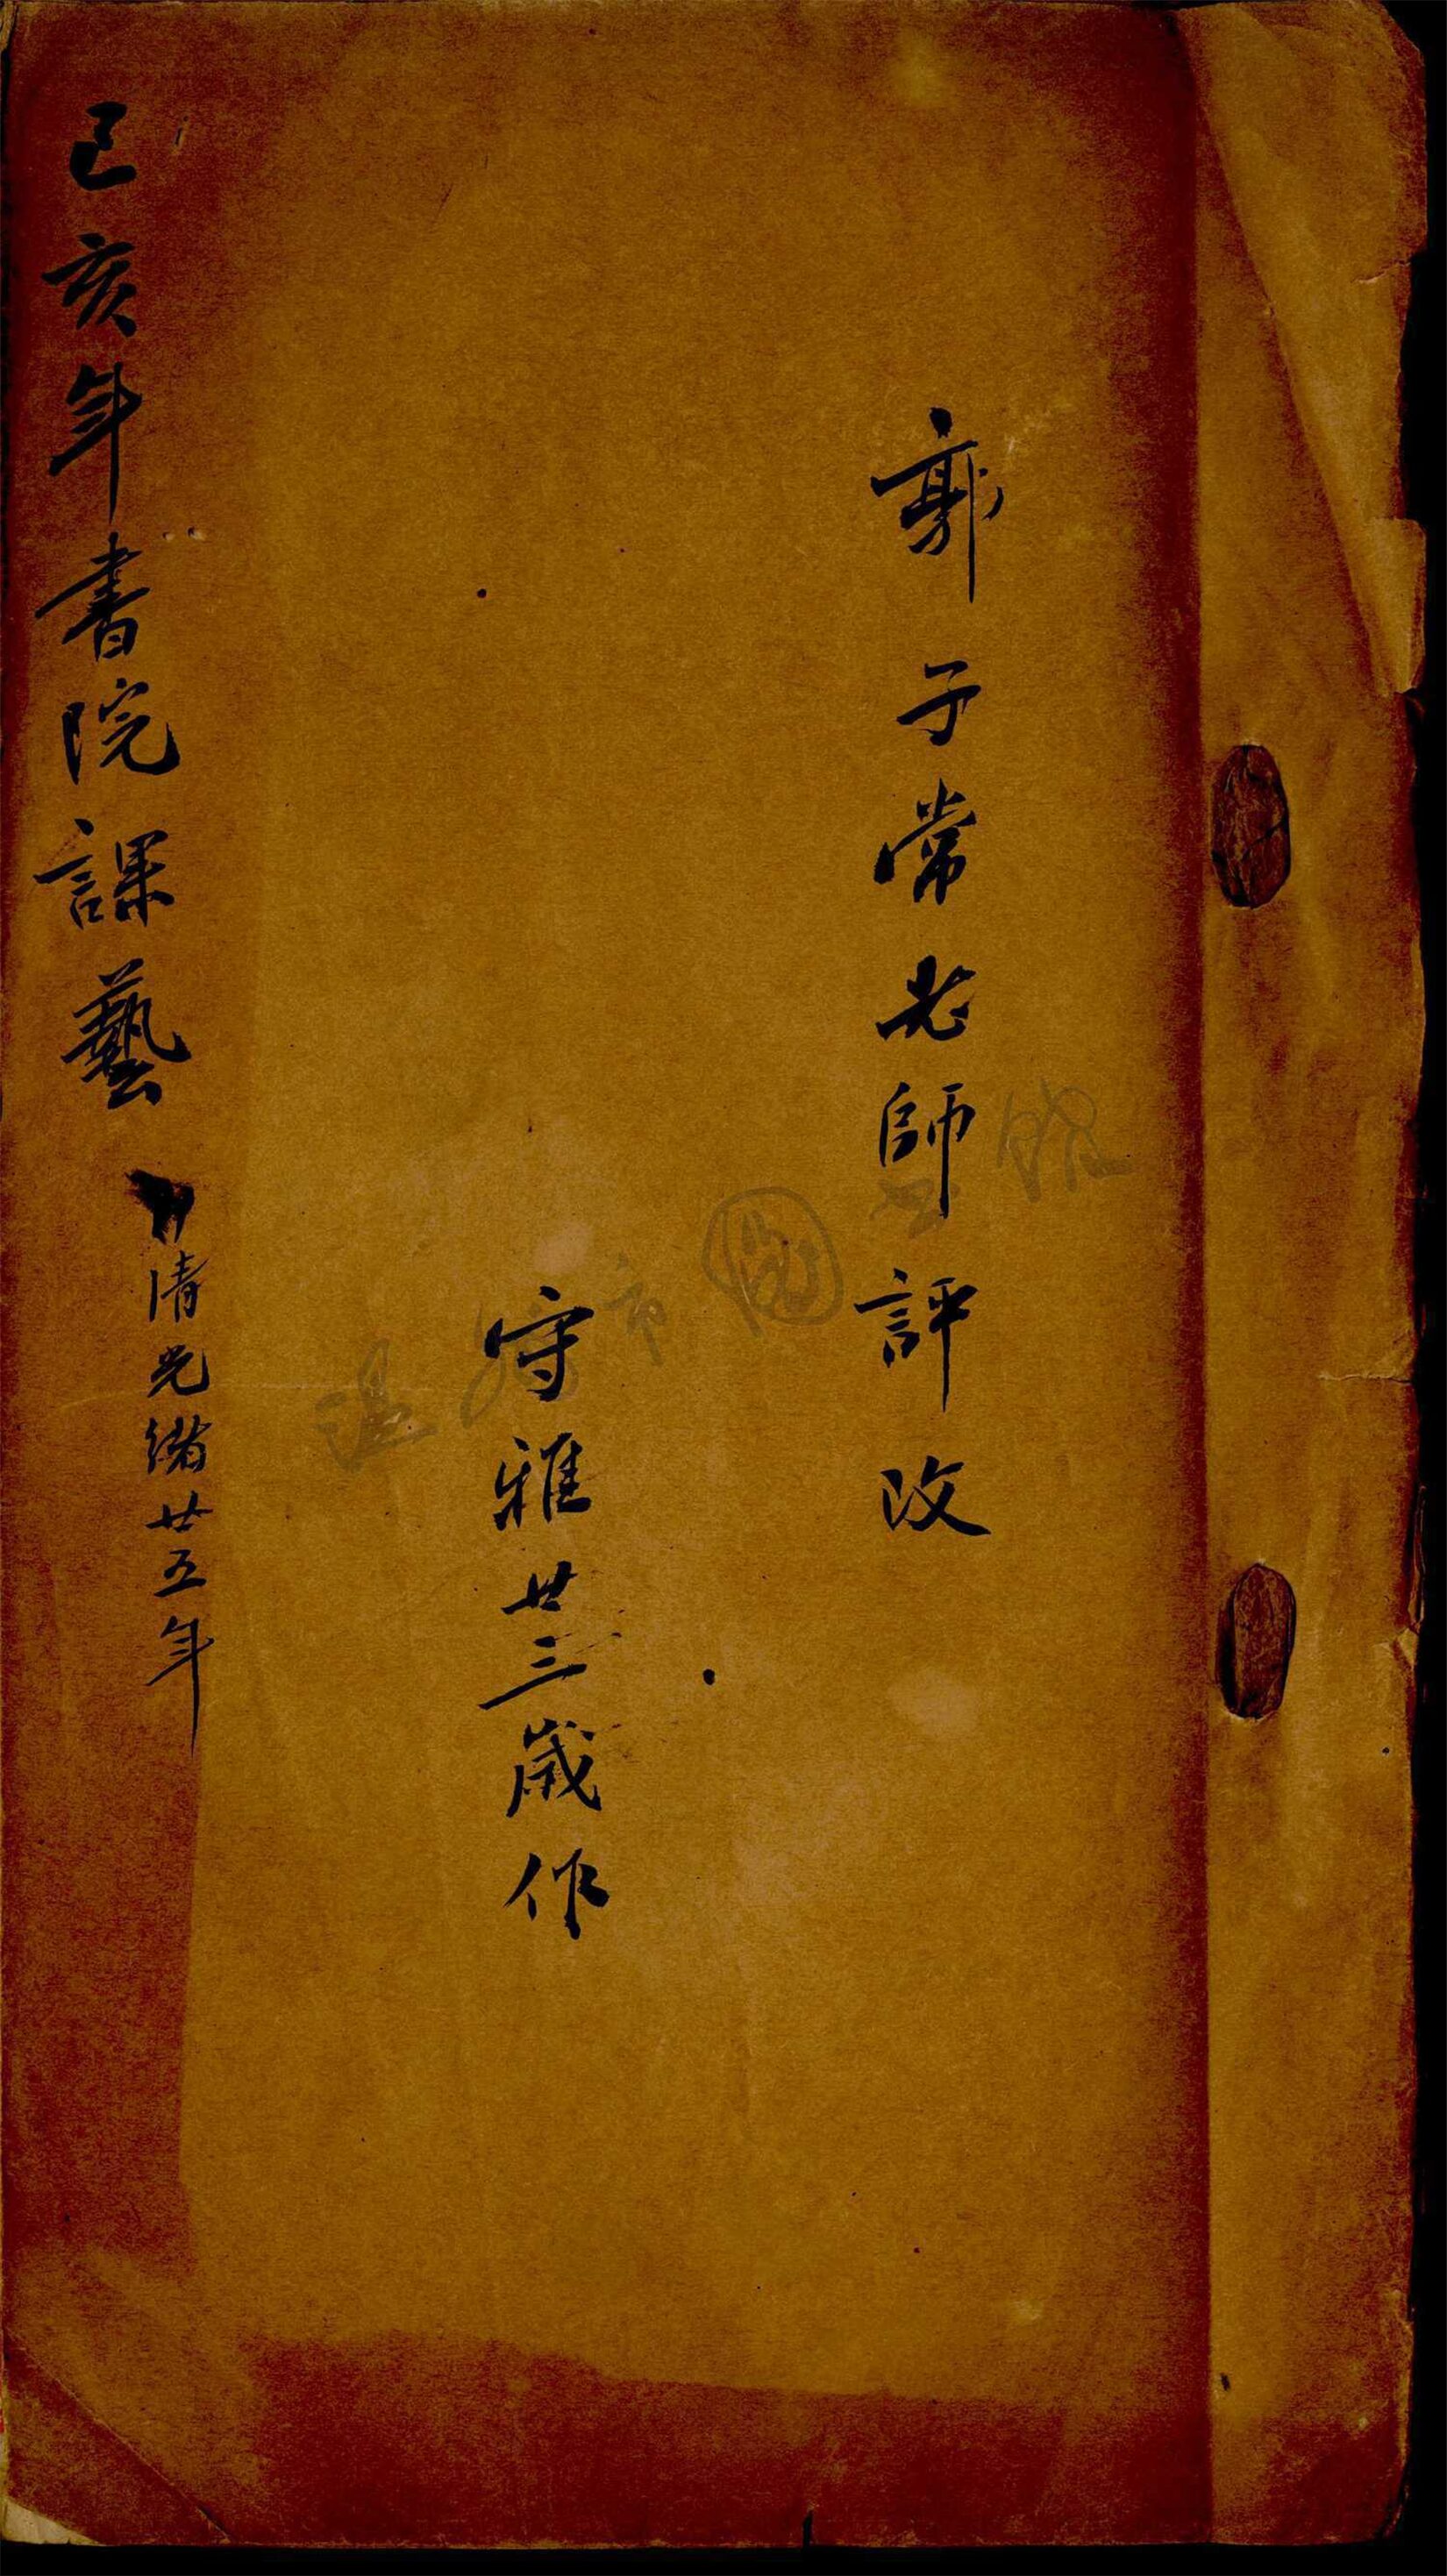 郭子常老師評改
守雅廿三歲作
己亥年書院課藝
清光緒廿五年
温州市圖書館